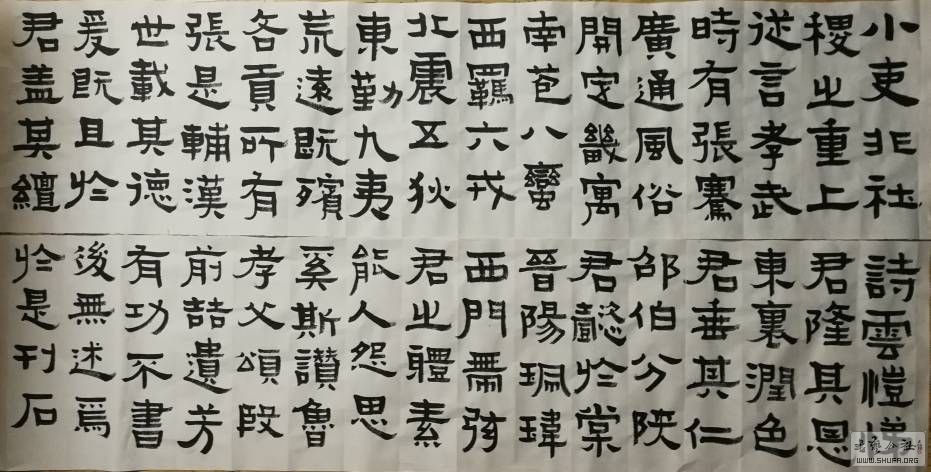 小吏非社
稷之重上
從言孝武
時有張騫
廣通風俗
開定畿寓
南苞八蠻
西羈六戎
北震五狄
東勤九夷
荒遠既殯
各貢所有
張是輔漢
世載其德
爰既且於
君盖其繵
詩雲愷
君隆其恩
東裏潤色
君垂其仁
邵伯分陝
君懿於棠
晉陽珮瑋
西門帶弦
君之體素
能人怨思
奚斯讚魯
孝父頌殷
前喆遺芳
有功不書
後無述焉
於是刊石
WWW.SHUFA.ORG